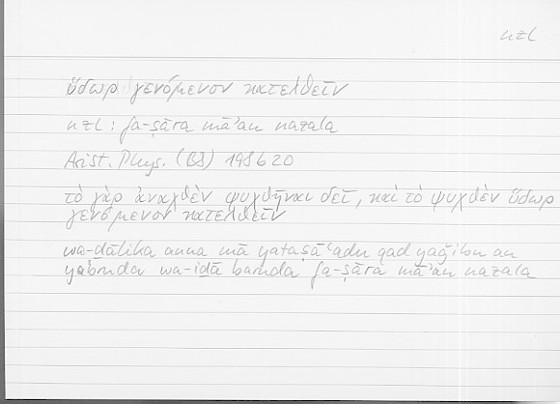 nzl
ὕδωρ γενόμενον κατελθεῖν
nzl : fa-ṣāra māʾan nazala
Arist. Phys. (B8) 198b20
τὸ γὰρ ἀναχθὲν ψυχθῆναι δεῖ, καὶ τὸ ψυχθὲν ὕδωρ
γενόμενον κατελθεῖν
wa-ḏālika anna mā yataṣāʿadu qad yaǧibu an
yabruda wa-iḏā baruda fa-ṣāra māʾan nazala